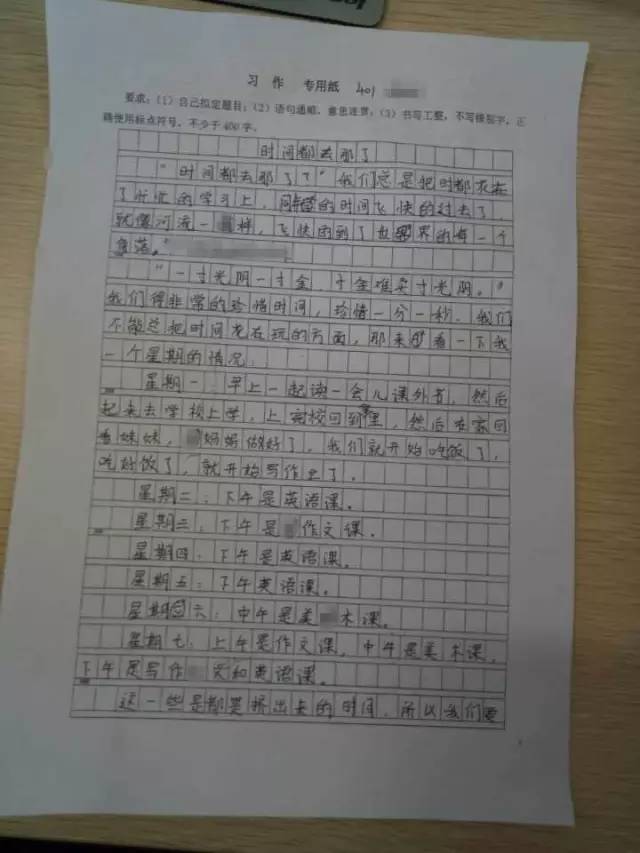 习 作 专用纸 401
要求:(1)自己拟定题目;(2)语句通顺,意思连贯;(3)书写工整,不写错别字,正
确使用标点符号,不少于400字。
时间都去那了
“时间都去那了?”我们总是把时都花在
了忙忙的学习上,同学的时间飞快的过去了,
就像河流一样,飞快的到了世界的每一个
角落。”
“一寸光阴一寸金,寸金难买寸光阴。”
我们得非常的珍惜时间,珍惜一分一秒。我们
不能总把时间花在玩的方面,那来看一下我
一个星期的情况:
星期一:早上一起读一会儿课外书,然后
起来去学校上学,上完校回到家里,然后在家回
看妹妹,妈妈做好了,我们就开始吃饭了,
吃好饭了,就开始写作业了。
星期二:下午是英语课。
星期三:下午是作文课。
星期四:下午是英语课。
星期五:下午英语课。
星期六:中午是美术课。
星期七:上午是作文课,中午是美术课,
下午是写作和英语课。
这一些是都要挤出去的时间,所以我们要